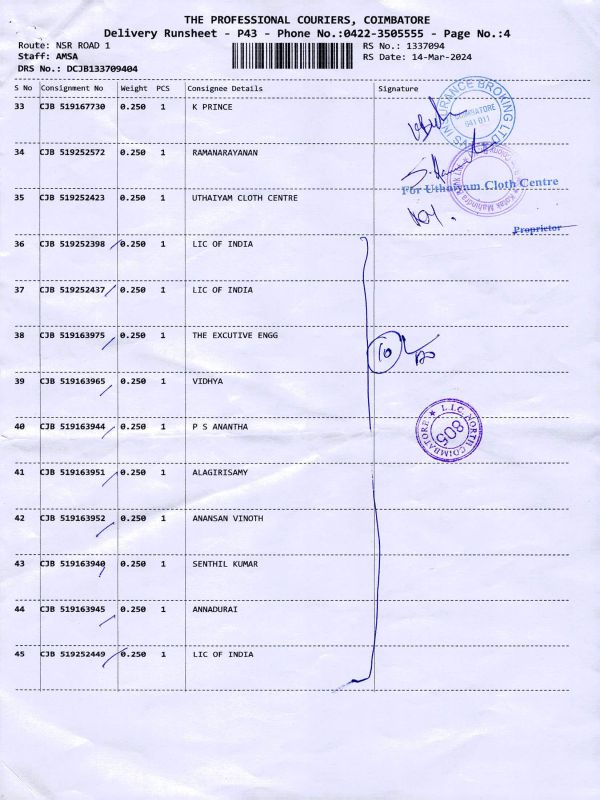 THE PROFESSIONAL COURIERS, COIMBATORE
Delivery Runsheet - P43 - Phone No.:0422-3505555 - Page No.:4
Route: NSR ROAD 1 RS No.: 1337094
Staff: AMSA RS Date: 14-Mar-2024
DRS No.: DCJB133709404
S No Consignment No Weight PCS Consignee Details Signature
33 CJB 519167730 0.250 1 K PRINCE
34 CJB 519252572 0.250 1 RAMANARAYANAN
35 CJB 519252423 0.250 1 UTHAIYAM CLOTH CENTRE
For Uthaiyam Cloth Centre
Proprietor
36 CJB 519252398 0.250 1 LIC OF INDIA
37 CJB 519252437 0.250 1 LIC OF INDIA
38 CJB 519163975 0.250 1 THE EXCUTIVE ENGG
10
39 CJB 519163965 0.250 1 VIDHYA
40 CJB 519163944 0.250 1 P S ANANTHA
L.I.C. NORTH COIMBATORE
805
41 CJB 519163951 0.250 1 ALAGIRISAMY
42 CJB 519163952 0.250 1 ANANSAN VINOTH
43 CJB 519163940 0.250 1 SENTHIL KUMAR
44 CJB 519163945 0.250 1 ANNADURAI
45 CJB 519252449 0.250 1 LIC OF INDIA